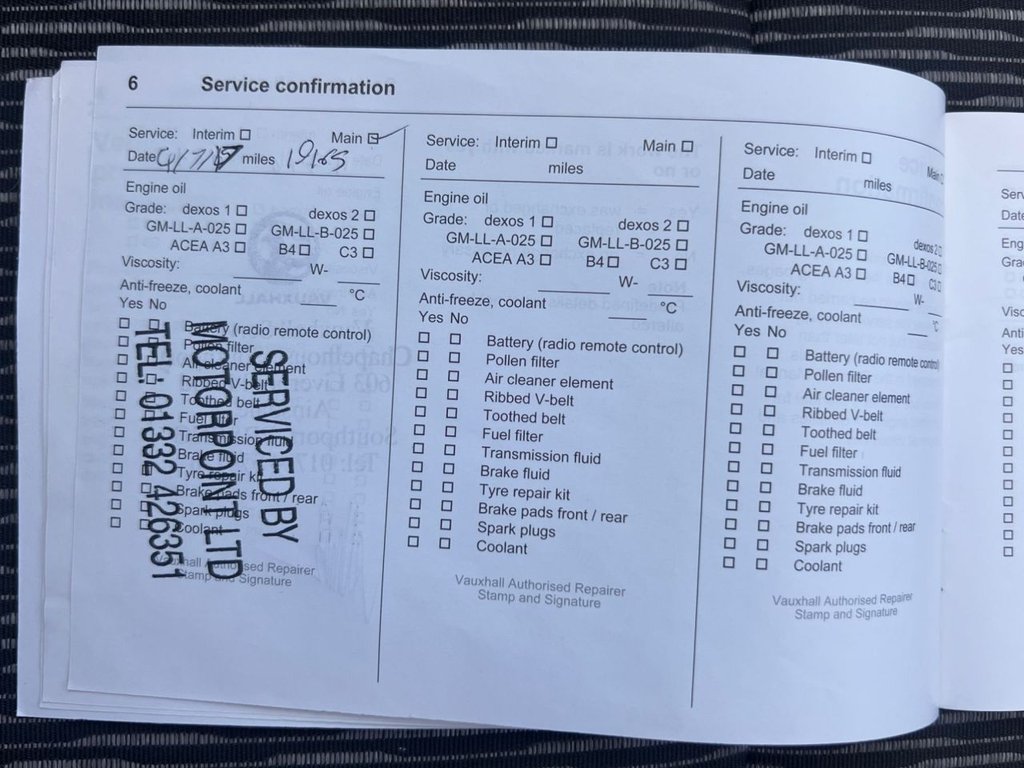 6 Service confirmation
Service: Interim ☐ Main ☑
Date miles
Engine oil
Grade: dexos 1 ☐ dexos 2 ☐
GM-LL-A-025 ☐ GM-LL-B-025 ☐
ACEA A3 ☐ B4 ☐ C3 ☐
Viscosity: W-
Anti-freeze, coolant °C
Yes No
☐ ☐ Battery (radio remote control)
☐ ☐ Pollen filter
☐ ☐ Air cleaner element
☐ ☐ Ribbed V-belt
☐ ☐ Toothed belt
☐ ☐ Fuel filter
☐ ☐ Transmission fluid
☐ ☐ Brake fluid
☐ ☐ Tyre repair kit
☐ ☐ Brake pads front / rear
☐ ☐ Spark plugs
☐ ☐ Coolant
Vauxhall Authorised Repairer
Stamp and Signature
SERVICED BY
MOTORPOINT LTD
TEL: 01332 426351
Service: Interim ☐ Main ☐
Date miles
Engine oil
Grade: dexos 1 ☐ dexos 2 ☐
GM-LL-A-025 ☐ GM-LL-B-025 ☐
ACEA A3 ☐ B4 ☐ C3 ☐
Viscosity: W-
Anti-freeze, coolant °C
Yes No
☐ ☐ Battery (radio remote control)
☐ ☐ Pollen filter
☐ ☐ Air cleaner element
☐ ☐ Ribbed V-belt
☐ ☐ Toothed belt
☐ ☐ Fuel filter
☐ ☐ Transmission fluid
☐ ☐ Brake fluid
☐ ☐ Tyre repair kit
☐ ☐ Brake pads front / rear
☐ ☐ Spark plugs
☐ ☐ Coolant
Vauxhall Authorised Repairer
Stamp and Signature
Service: Interim ☐ Main ☐
Date miles
Engine oil
Grade: dexos 1 ☐ dexos 2 ☐
GM-LL-A-025 ☐ GM-LL-B-025 ☐
ACEA A3 ☐ B4 ☐ C3 ☐
Viscosity: W-
Anti-freeze, coolant °C
Yes No
☐ ☐ Battery (radio remote control)
☐ ☐ Pollen filter
☐ ☐ Air cleaner element
☐ ☐ Ribbed V-belt
☐ ☐ Toothed belt
☐ ☐ Fuel filter
☐ ☐ Transmission fluid
☐ ☐ Brake fluid
☐ ☐ Tyre repair kit
☐ ☐ Brake pads front / rear
☐ ☐ Spark plugs
☐ ☐ Coolant
Vauxhall Authorised Repairer
Stamp and Signature